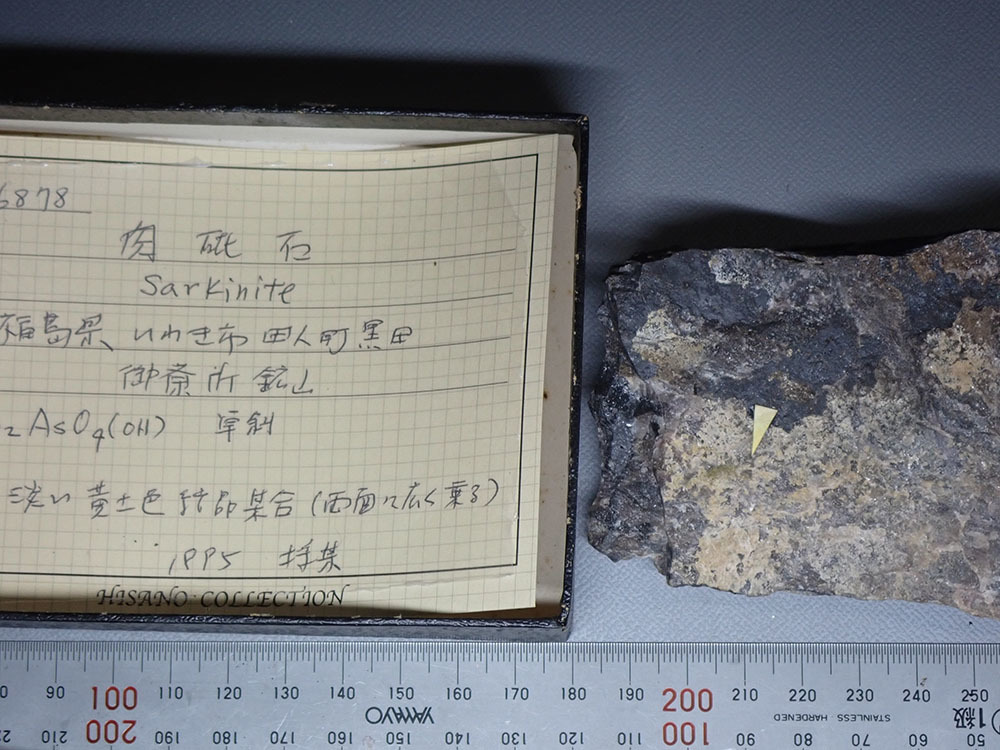 6878
肉砒石
Sarkinite
福島県 いわき市 田人町 黒田
御斎所 鉱山
2AsO4(OH) 単斜
淡い黄土色 結晶集合 (両面に広く乗る)
1995 採集
HISANO COLLECTION
90 100 110 120 130 140 150 160 170 180 190 200 210 220 230 240 250
YAMAYO
STAINLESS HARDENED
1級
210 200 190 180 170 160 150 140 130 120 110 100 90 80 70 60 50